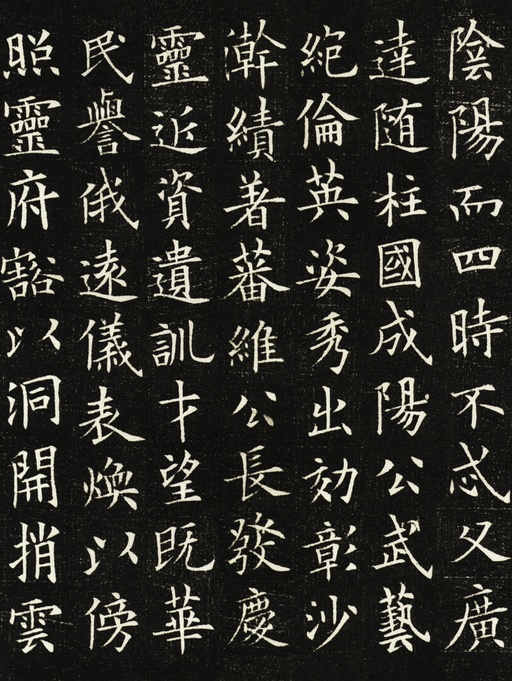 陰陽而四時不忒父廣
達随柱國成陽公武藝
絶倫英姿秀出効彰沙
澣績著蕃維公長發慶
靈近資遺訓才望既華
民譽俄遠儀表煥以傍
照靈府豁以洞開捎雲